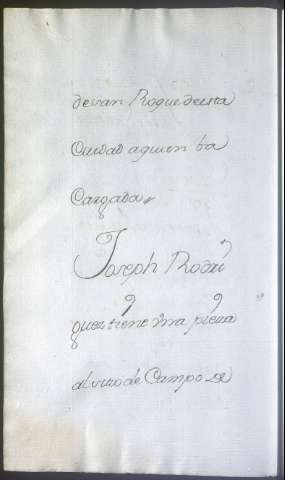 de san Roque de esta
Ciudad a quien ba
Cargada
Joseph Rodri
guez tiene vna pieza
al vzo de Campo de